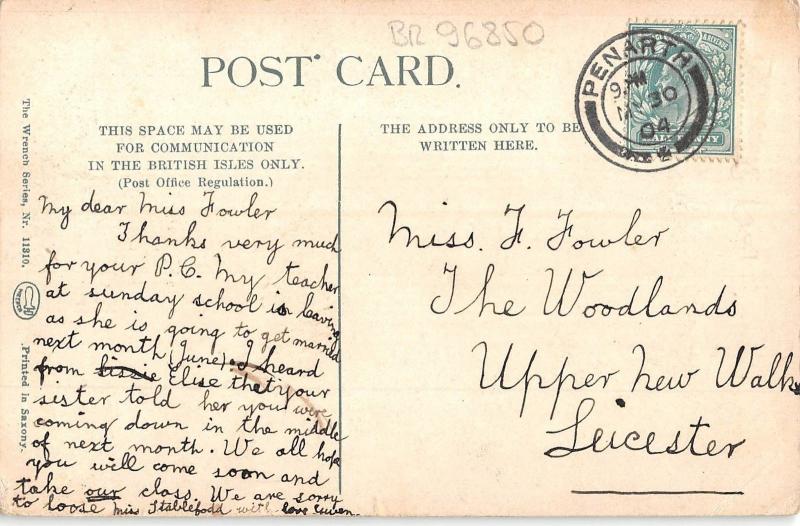 BR 96850
POST CARD.
THIS SPACE MAY BE USED
FOR COMMUNICATION
IN THE BRITISH ISLES ONLY.
(Post Office Regulation.)
THE ADDRESS ONLY TO BE
WRITTEN HERE.
PENARTH
30
04
The Wrench Series, Nr. 11310.
Printed in Saxony.
My dear Miss Fowler
Thanks very much
for your P.C. My teacher
at sunday school is leaving
as she is going to get married
next month (June). I heard
from Elise that your
sister told her you were
coming down in the middle
of next month. We all hope
you will come soon and
take our class. We are sorry
to loose Miss with love Gwen.
Miss. F. Fowler
The Woodlands
Upper New Walk
Leicester